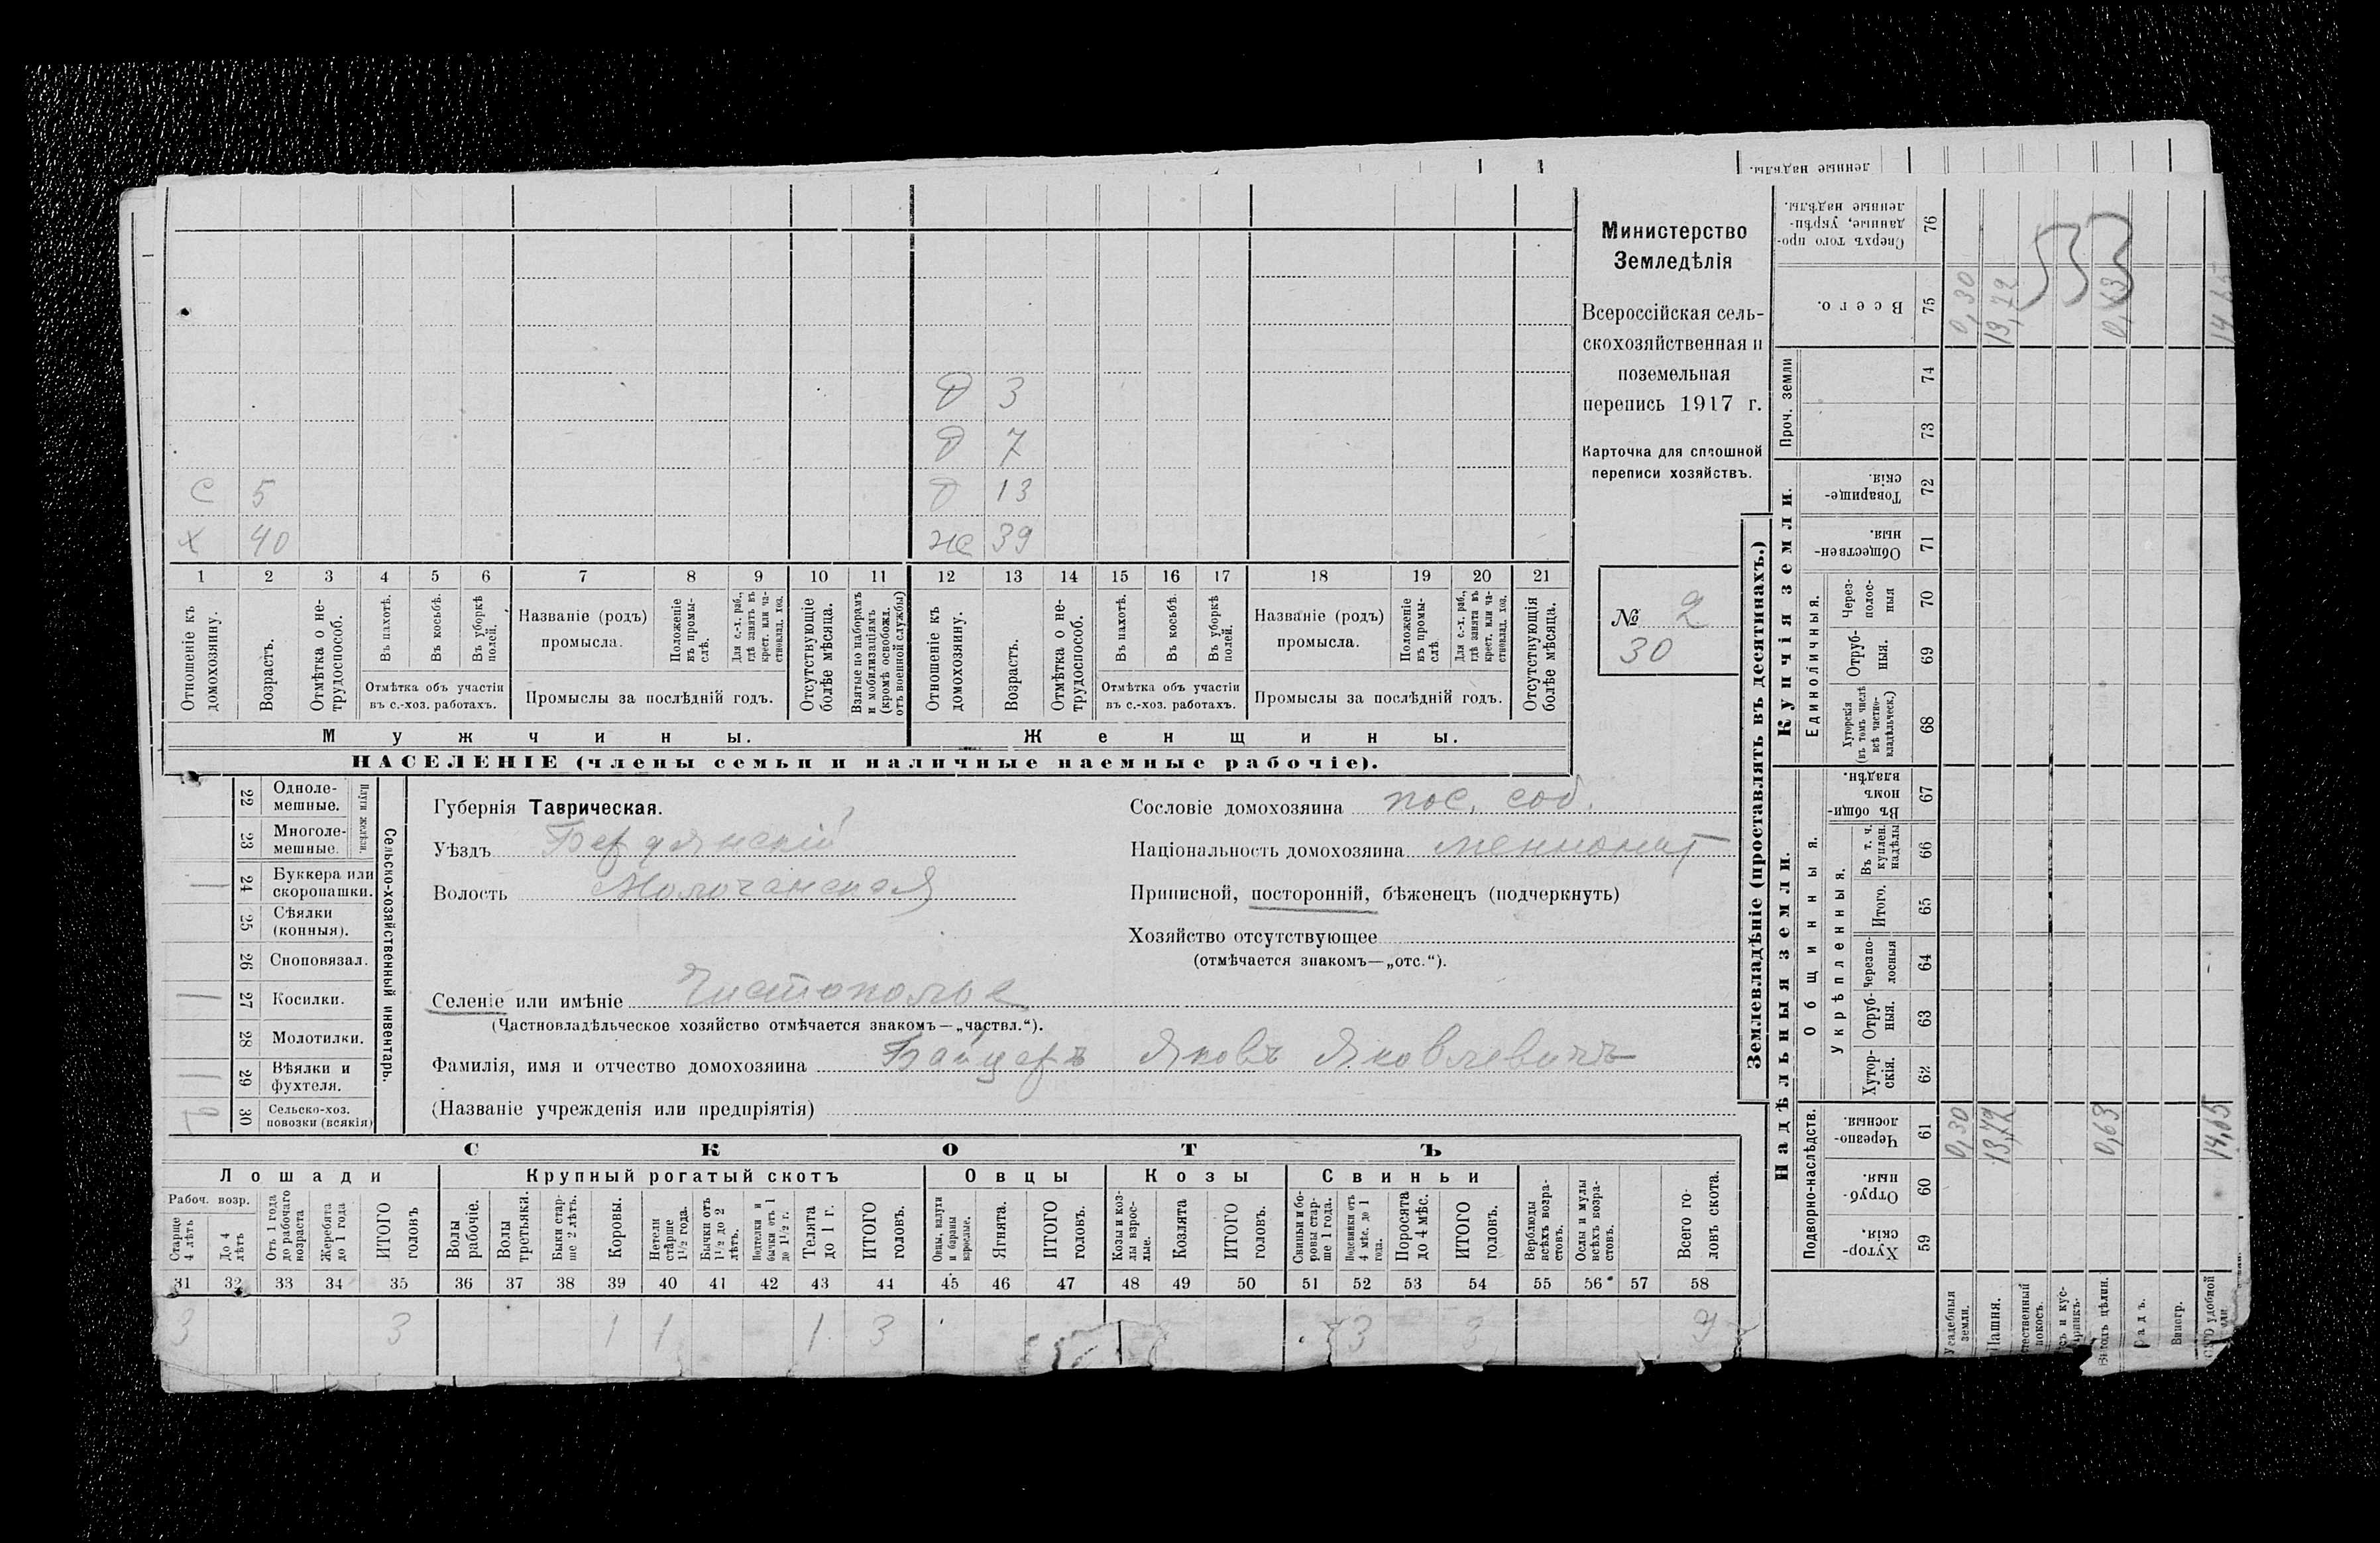 Министерство
Земледѣлія
Всероссійская сель-
скохозяйственная и
поземельная
перепись 1917 г.
Карточка для сплошной
переписи хозяйствъ.
№ 2
30
Д 3
Д 7
С 5 Д 13
Х 40 же 39
1 2 3 4 5 6 7 8 9 10 11 12 13 14 15 16 17 18 19 20 21
Отношеніе къ домохозяину.
Возрастъ.
Отмѣтка о не-трудоспособ.
Въ пахотѣ.
Въ косьбѣ.
Въ уборкѣ полей.
Отмѣтка объ участіи въ с.-хоз. работахъ.
Названіе (родъ) промысла.
Положеніе въ промы-слѣ.
Для с.-х. раб., гдѣ занятъ въ крест. или ча-стновлад. хоз.
Промыслы за послѣдній годъ.
Отсутствующіе болѣе мѣсяца.
Взятые по наборамъ и мобилизаціямъ (кромѣ освобожд. отъ военной службы)
Отношеніе къ домохозяину.
Возрастъ.
Отмѣтка о не-трудоспособ.
Въ пахотѣ.
Въ косьбѣ.
Въ уборкѣ полей.
Отмѣтка объ участіи въ с.-хоз. работахъ.
Названіе (родъ) промысла.
Положеніе въ промы-слѣ
Для с.-х. раб., гдѣ занята въ крест. или ча-стновлад. хоз.
Промыслы за послѣдній годъ.
Отсутствующія болѣе мѣсяца.
Мужчины. Женщины.
НАСЕЛЕНІЕ (члены семьи и наличные наемные рабочіе).
22 Одноле-мешные.
23 Многоле-мешные.
Плуги желѣзн.
1 24 Буккера или скоропашки.
25 Сѣялки (конныя).
26 Сноповязал.
1 27 Косилки.
28 Молотилки.
1 29 Вѣялки и фухтеля.
30 Сельско-хоз. повозки (всякія)
Сельско-хозяйственный инвентарь.
Губернія Таврическая.
Уѣздъ Бердянскій
Волость Молочанская
Селеніе или имѣніе Чистополье
(Частновладѣльческое хозяйство отмѣчается знакомъ—„частвл.“).
Фамилія, имя и отчество домохозяина Яковъ Яковлевичъ
(Названіе учрежденія или предпріятія)
Сословіе домохозяина пос. соб.
Національность домохозяина меннонит
Приписной, посторонній, бѣженецъ (подчеркнуть)
Хозяйство отсутствующее
(отмѣчается знакомъ—„отс.“).
СКОТЪ
Лошади Крупный рогатый скотъ Овцы Козы Свиньи
Рабоч. возр.
Старше 4 лѣтъ
До 4 лѣтъ
Отъ 1 года до рабочаго возраста
Жеребята до 1 года
ИТОГО головъ
Волы рабочіе.
Волы третьяки.
Быки стар-ше 2 лѣтъ.
Коровы.
Нетели старше 1½ года.
Бычки отъ 1½ до 2 лѣтъ.
Нетелки и бычки отъ 1 до 1½ г.
Телята до 1 г.
ИТОГО головъ.
Овцы, валухи и бараны взрослые.
Ягнята.
ИТОГО головъ.
Козы и коз-лы взрос-лые.
Козлята
ИТОГО головъ.
Свиньи и бо-ровы стар-ше 1 года.
Подсвинки отъ 4 мѣс. до 1 года.
Поросята до 4 мѣс.
ИТОГО головъ.
Верблюды всѣхъ возра-стовъ.
Ослы и мулы всѣхъ возра-стовъ.
Всего го-ловъ скота.
31 32 33 34 35 36 37 38 39 40 41 42 43 44 45 46 47 48 49 50 51 52 53 54 55 56 57 58
3 3 1 1 1 3 3 3 9
Землевладѣніе (проставлять въ десятинахъ.)
Надѣльныя земли. Купчія земли. Проч. земли
Подворно-наслѣдств. Общинныя. Единоличныя.
Укрѣпленныя.
Хутор-скія. 59
Отруб-ныя. 60
Черезпо-лосныя. 61
Хутор-скія. 62
Отруб-ныя. 63
Черезпо-лосныя 64
Итого. 65
Въ т. ч. куплен. надѣлы 66
Въ общи-номъ владѣн. 67
Хуторскія (въ томъ числѣ всѣ частно-владѣльческ.) 68
Отруб-ныя. 69
Через-полос-ныя 70
Обществен-ныя. 71
Товарище-скія. 72
73
74
Всего. 75
Сверхъ того про-данные, укрѣп-ленные надѣлы. 76
ленные надѣлы.
Усадебныя земли. 0,30 0,30
Пашня. 13,72 13,72
покосъ.
0,63 0,63
Виногр.
удобной 14,65 14,65
533